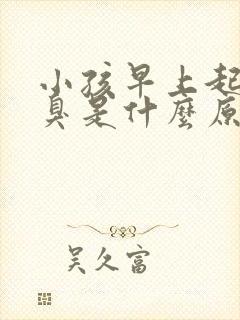 小孩早上起
臭是什麼原
吴久富